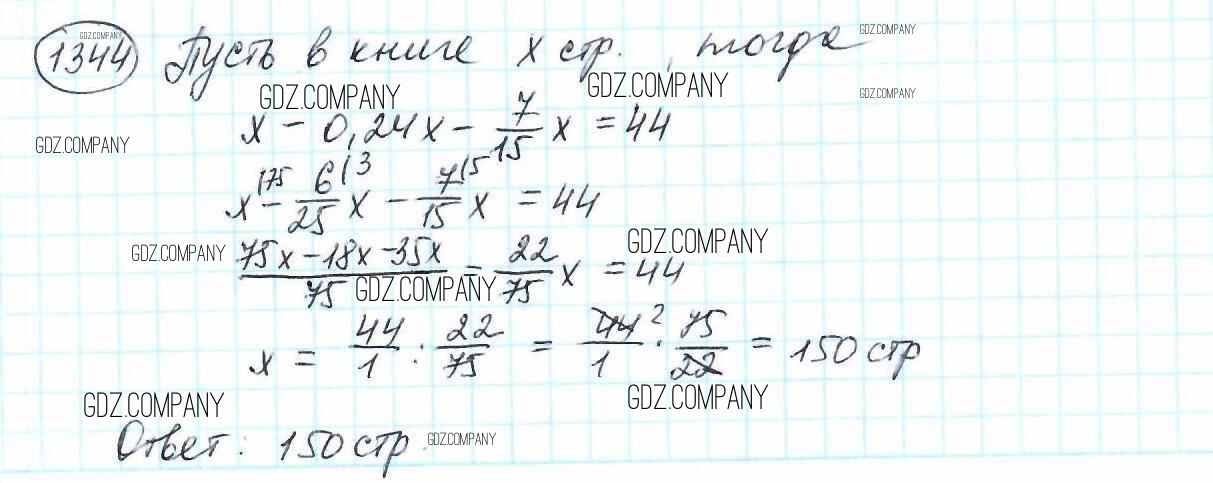 1344 Пусть в книге x стр., тогда
x - 0,24x - 7/15 x = 44
x |75 - 6/25 |3 x - 7/15 |5 x = 44
(75x - 18x - 35x)/75 = 22/75 x = 44
x = 44/1 : 22/75 = 44/1 2 · 75/22 = 150 стр
Ответ: 150 стр.
GDZ.COMPANY
GDZ.COMPANY
GDZ.COMPANY
GDZ.COMPANY
GDZ.COMPANY
GDZ.COMPANY
GDZ.COMPANY
GDZ.COMPANY
GDZ.COMPANY
GDZ.COMPANY
GDZ.COMPANY
GDZ.COMPANY